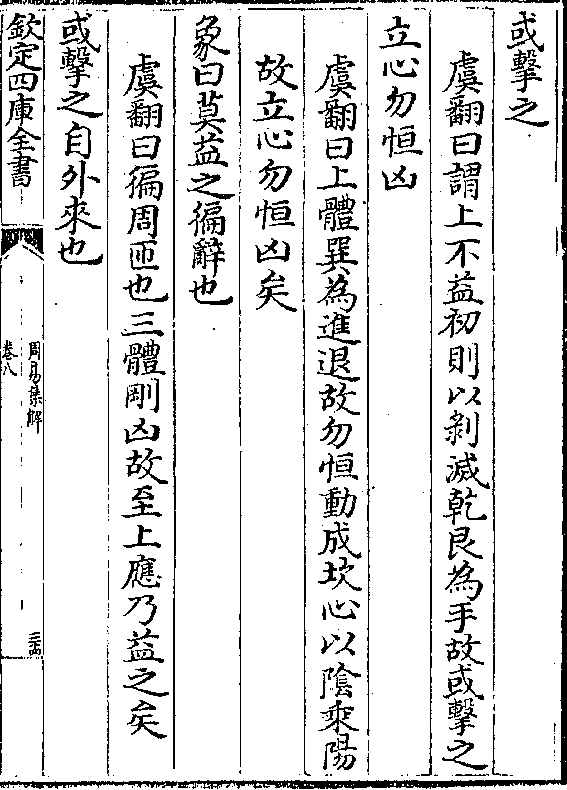 或擊之
虞翻曰謂上不益初則以剝滅乾艮為手故或擊之
立心勿恒凶
虞翻曰上體巽為進退故勿恒動成坎心以陰乗陽
故立心勿恒凶矣
象曰莫益之徧辭也
虞翻曰徧周匝也三體剛凶故至上應乃益之矣
或擊之自外來也
欽定四庫全書
周易集解
卷八
三十四